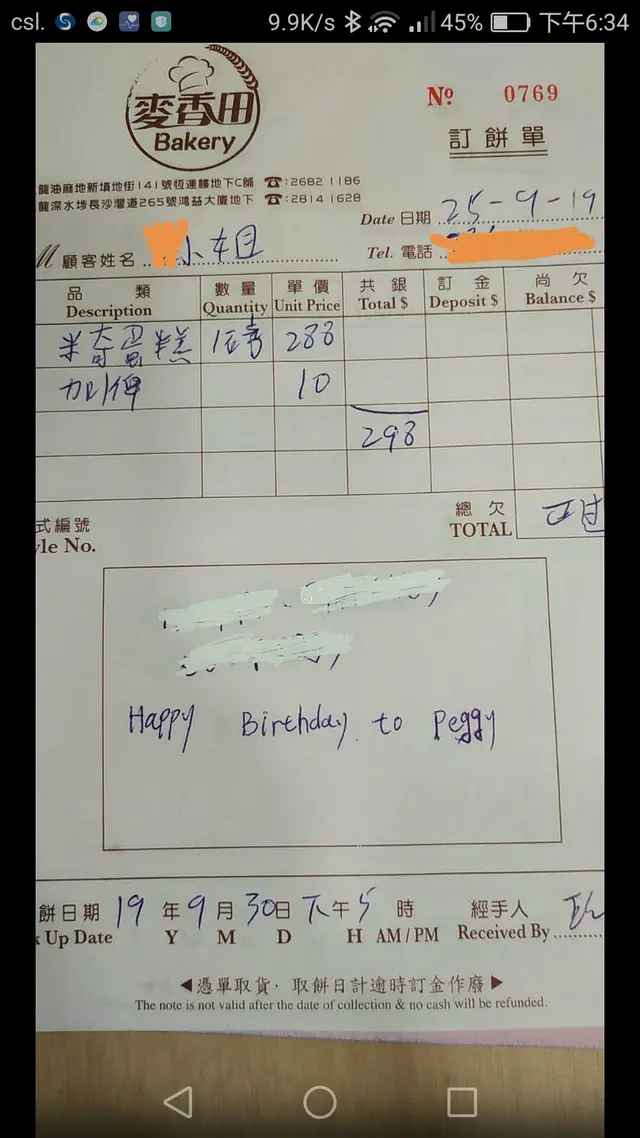 csl. 9.9K/s 45% 下午6:34
麥香田
Bakery
№ 0769
訂餅單
龍油麻地新填地街141號恆運樓地下C舖 ☎:2682 1186
龍深水埗長沙灣道265號鴻益大廈地下 ☎:2814 1628
Date 日期 25-9-19
M 顧客姓名 小姐 Tel. 電話
品類 數量 單價 共銀 訂金 尚欠
Description Quantity Unit Price Total $ Deposit $ Balance $
蛋糕 288
加 10
298
式編號 總欠
yle No. TOTAL
Happy Birthday to Peggy
餅日期 19 年 9 月 30 日 下午 5 時 經手人
k Up Date Y M D H AM/PM Received By
◀憑單取貨·取餅日計逾時訂金作廢▶
The note is not valid after the date of collection & no cash will be refunded.